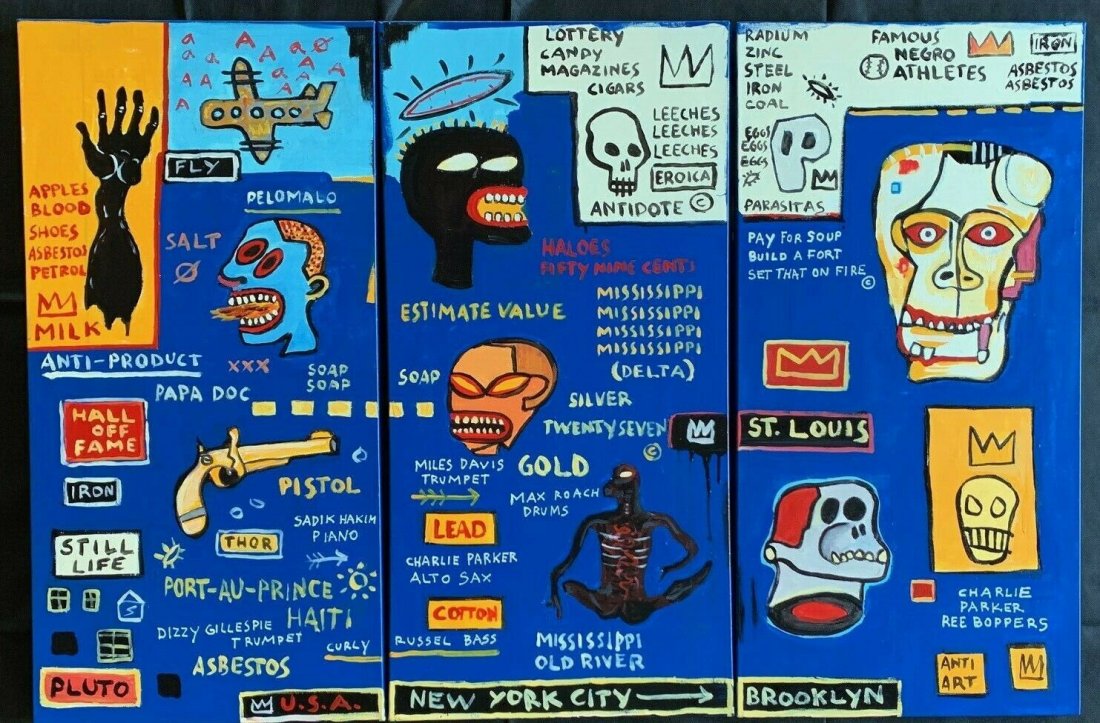 a A a Ø
a A A a A
A A A A
A
FLY
APPLES
BLOOD
SHOES
ASBESTOS
PETROL
MILK
PELOMALO
SALT
Ø
XXX
ANTI-PRODUCT
SOAP
SOAP
PAPA DOC
HALL
OFF
FAME
IRON
PISTOL
SADIK HAKIM
PIANO
THOR
STILL
LIFE
PORT-AU-PRINCE
HAITI
S
DIZZY GILLESPIE
TRUMPET
CURLY
ASBESTOS
PLUTO
U.S.A.
LOTTERY
CANDY
MAGAZINES
CIGARS
LEECHES
LEECHES
LEECHES
EROICA
ANTIDOTE ©
HALOES
FIFTY NINE CENT
ESTIMATE VALUE
MISSISSIPPI
MISSISSIPPI
MISSISSIPPI
MISSISSIPPI
(DELTA)
SOAP
SILVER
TWENTY SEVEN
©
MILES DAVIS
TRUMPET
GOLD
MAX ROACH
DRUMS
LEAD
CHARLIE PARKER
ALTO SAX
COTTON
RUSSEL BASS
MISSISSIPPI
OLD RIVER
NEW YORK CITY
RADIUM
ZINC
STEEL
IRON
COAL
EGGS
EGGS
EGGS
PARASITAS
FAMOUS
NEGRO
ATHLETES
IRON
ASBESTOS
ASBESTOS
PAY FOR SOUP
BUILD A FORT
SET THAT ON FIRE
©
ST. LOUIS
CHARLIE
PARKER
REE BOPPERS
ANTI
ART
BROOKLYN